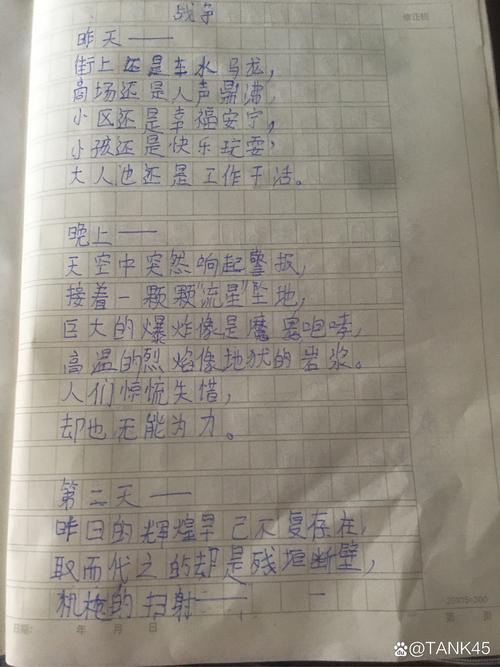 战争
修正栏
昨天——
街上还是车水马龙，
商场还是人声鼎沸，
小区还是幸福安宁，
小孩还是快乐玩耍，
大人也还是工作干活。
晚上——
天空中突然响起警报，
接着一颗颗“流星”坠地，
巨大的爆炸像是魔鬼咆哮，
高温的烈焰像地狱的岩浆。
人们惊慌失措，
却也无能为力。
第二天——
昨日的辉煌早已不复存在，
取而代之的却是残垣断壁，
机枪的扫射——
日期： 年 月 日
第 页
@TANK45